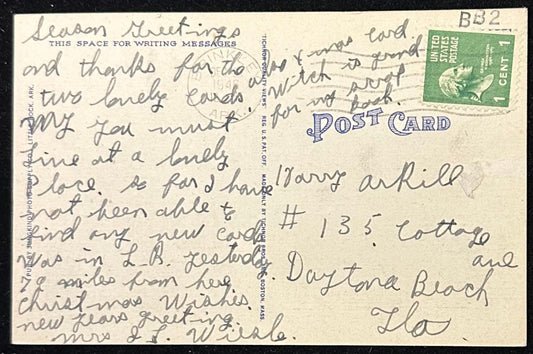 Season Greetings
THIS SPACE FOR WRITING MESSAGES
and thanks for the
two lovely cards.
My you must
live at a lovely
place. so far I have
not been able to
find any new cards
was in L.R. yesterday
79 miles from here.
Christmas Wishes.
new years greeting.
Mrs
also x-mas card
Witch is grand
for my scrap
book.
BB2
UNITED STATES POSTAGE
1 CENT 1
POST CARD
Harry
# 135 Cottage
ave
Daytona Beach
Fla
TICHNOR QUALITY VIEWS REG. U.S. PAT. OFF. MADE ONLY BY TICHNOR BROS., INC., BOSTON, MASS.
ROCK, ARK.